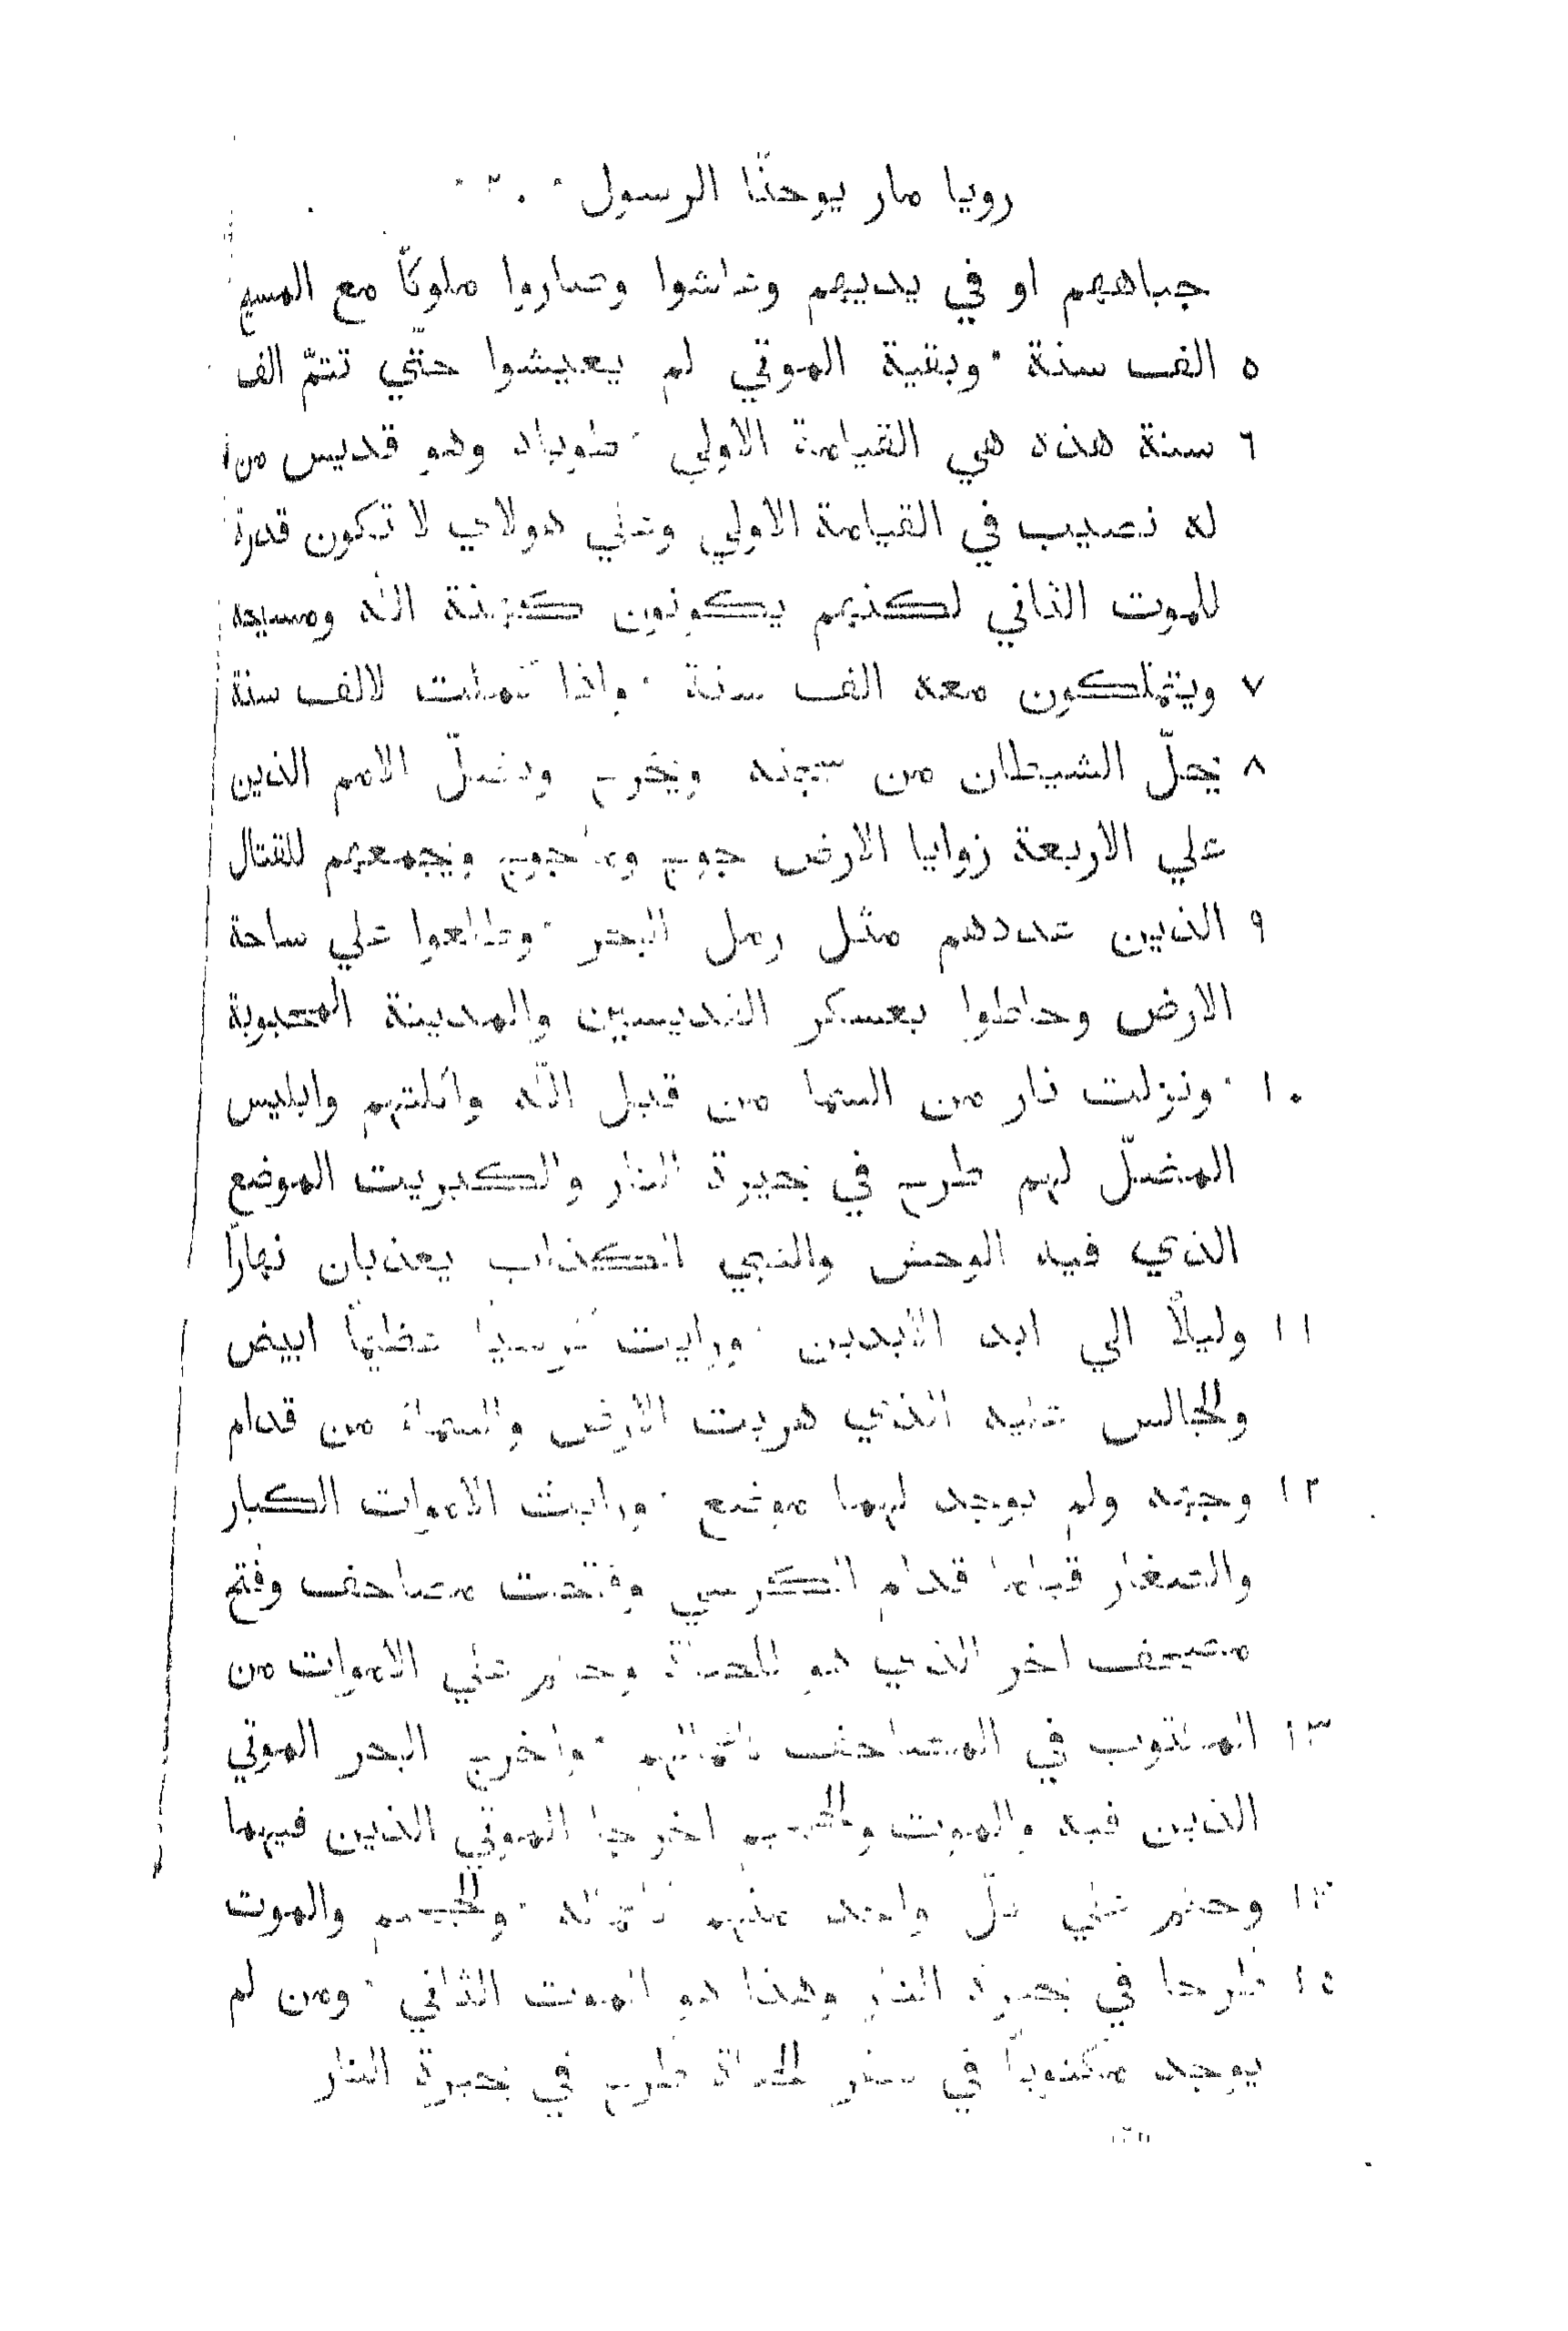 رويا مار يوحنّا الرسول ٢٠
جباههم او في يديهم وعاشوا وصاروا ملوكاً مع المسيح
٥ الف سنة ٠ وبقية الموتي لم يعيشوا حتّي تتمّ الف
٦ سنة هذه هي القيامة الاولي ٠ طوباه وهو قديس من
له نصيب في القيامة الاولي وعلي هولاي لا تكون قدرة
للموت الثاني لكنهم يكونون ككهنة الله ومسيحه
٧ ويتملكون معه الف سنة ٠ واذا كملت لالف سنة
٨ يحلّ الشيطان من سجنه ويخرج ويضلّ الامم الذين
علي الاربعة زوايا الارض جوج وماجوج ويجمعهم للقتال
٩ الذين عددهم مثل رمل البحر ٠ وطلعوا علي ساحة
الارض وحاطوا بعسكر القديسين والمدينة المحبوبة
١٠ ٠ ونزلت نار من السما من قبل الله واكلتهم وابليس
المضلّ لهم طرح في بحيرة النار والكبريت الموضع
الذي فيه الوحش والنبي الكذاب يعذبان نهاراً
١١ وليلاً الي ابد الابدين ٠ ورايت كرسياً عظيماً ابيض
والجالس عليه الذي هربت الارض والسماء من قدام
١٢ وجهه ولم يوجد لهما موضع ٠ ورايت الاموات الكبار
والصغار قياما قدام الكرسي وفتحت مصاحف وفتح
مصحف اخر الذي هو للحياة وحكم علي الاموات من
١٣ المكتوب في المصاحف كاعمالهم ٠ واخرج البحر الموتي
الذين فيه والموت والجحيم اخرجا الموتي الذين فيهما
١٤ وحكم علي كلّ واحد منهم كاعماله ٠ والجحيم والموت
١٥ طرحا في بحيرة النار وهذا هو الموت الثاني ٠ ومن لم
يوجد مكتوباً في سفر الحياة طرح في بحيرة النار